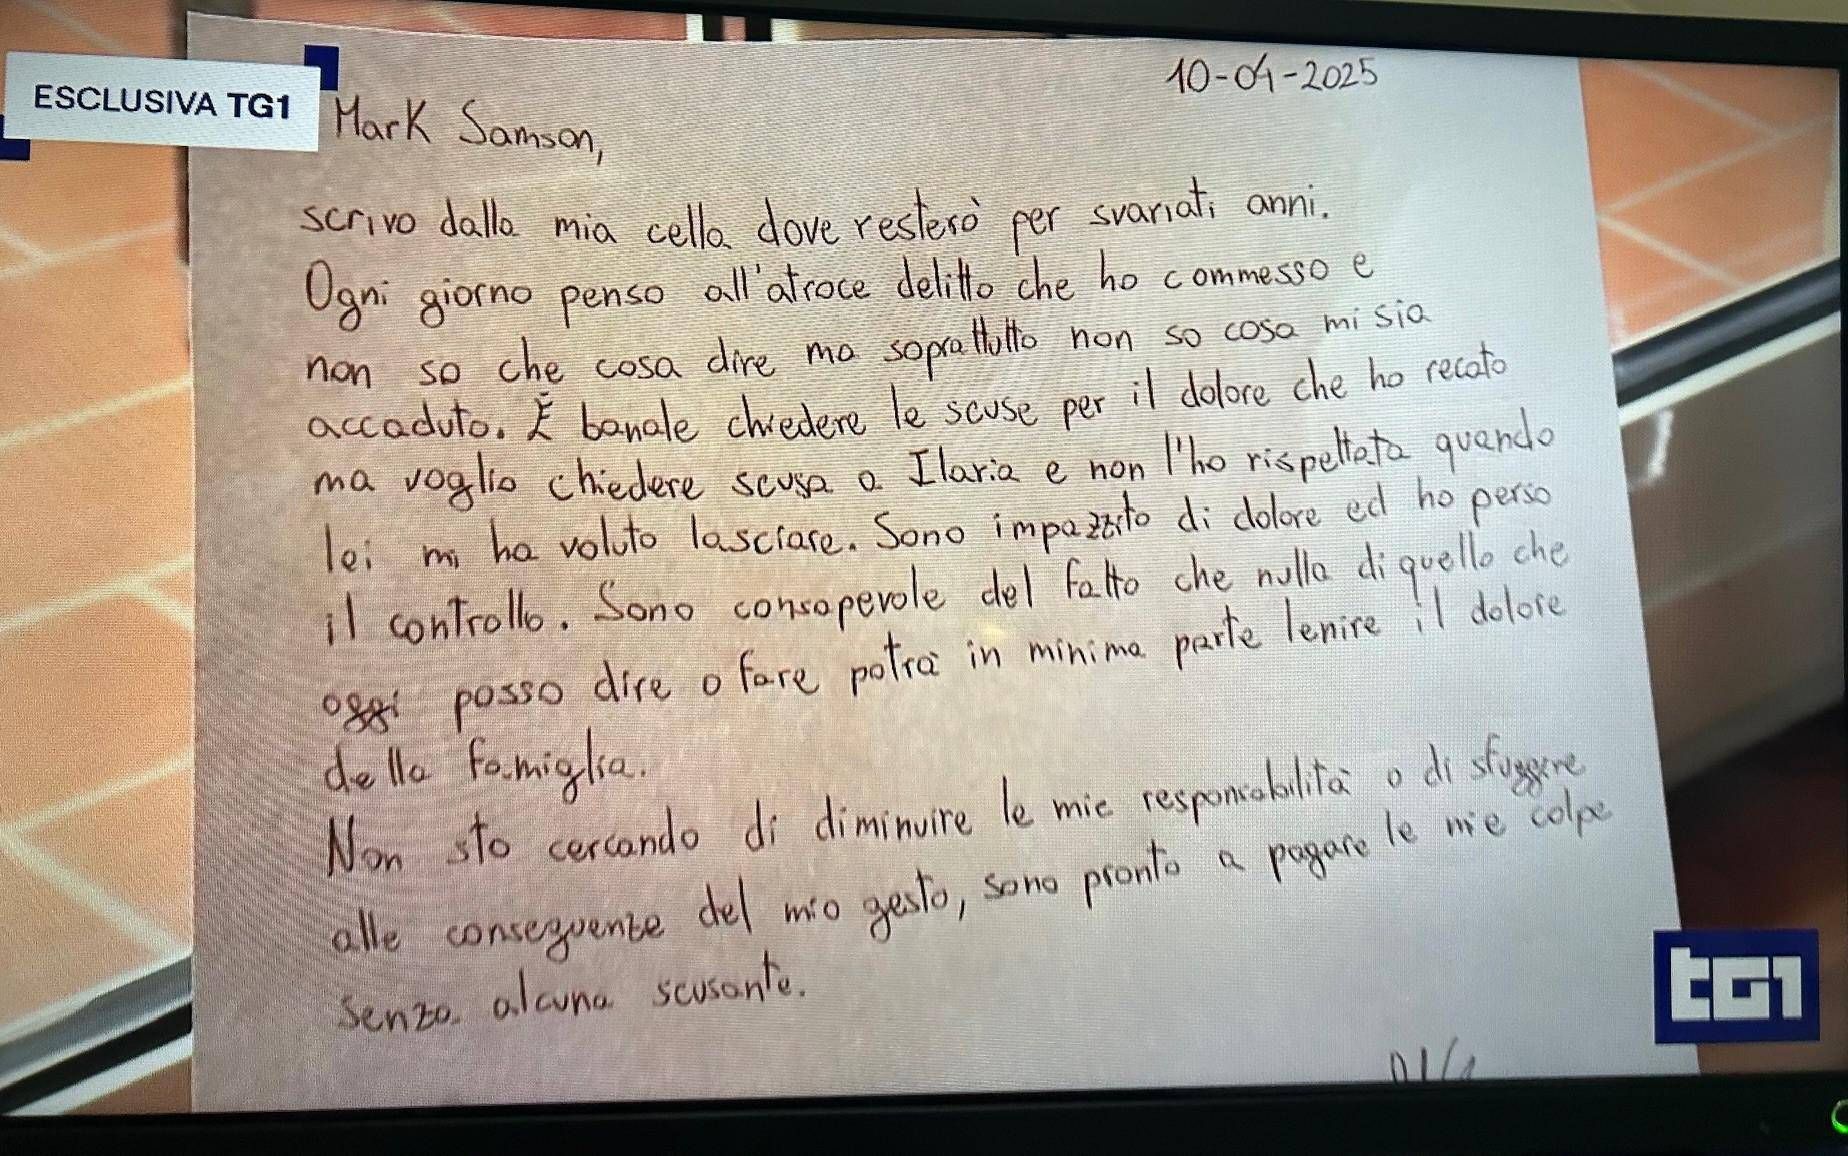 ESCLUSIVA TG1
10-04-2025
Mark Samson,
scrivo dalla mia cella dove resterò per svariati anni.
Ogni giorno penso all'atroce delitto che ho commesso e
non so che cosa dire ma soprattutto non so cosa mi sia
accaduto. È banale chiedere le scuse per il dolore che ho recato
ma voglio chiedere scusa a Ilaria e non l'ho rispettata quando
lei mi ha voluto lasciare. Sono impazzito di dolore ed ho perso
il controllo. Sono consapevole del fatto che nulla di quello che
oggi posso dire o fare potrà in minima parte lenire il dolore
della famiglia.
Non sto cercando di diminuire le mie responsabilità o di sfuggire
alle conseguenze del mio gesto, sono pronto a pagare le mie colpe
senza alcuna scusante.
TG1